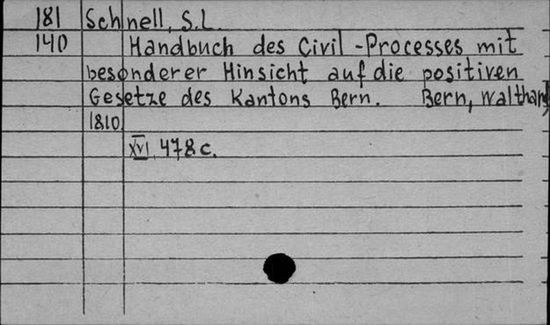 181 Schnell, S.L.
140 Handbuch des Civil-Processes mit
besonderer Hinsicht auf die positiven
Gesetze des Kantons Bern. Bern, Walthard,
1810.
XVI, 478 c.